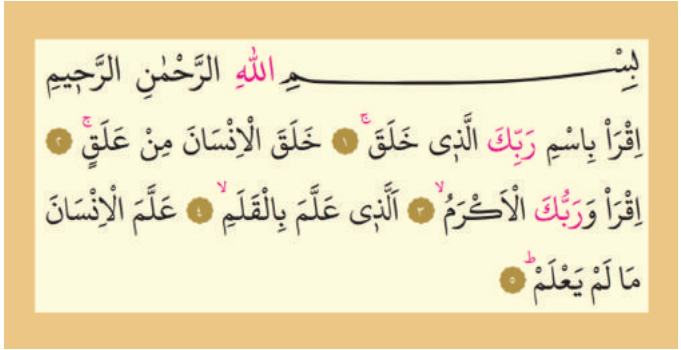 بِسْمِ اللهِ الرَّحْمٰنِ الرَّحٖيمِ
اِقْرَأْ بِاسْمِ رَبِّكَ الَّذٖى خَلَقَۚ ﴿١﴾ خَلَقَ الْاِنْسَانَ مِنْ عَلَقٍۚ ﴿٢﴾
اِقْرَأْ وَرَبُّكَ الْاَكْرَمُۙ ﴿٣﴾ اَلَّذٖى عَلَّمَ بِالْقَلَمِۙ ﴿٤﴾ عَلَّمَ الْاِنْسَانَ
مَا لَمْ يَعْلَمْۜ ﴿٥﴾